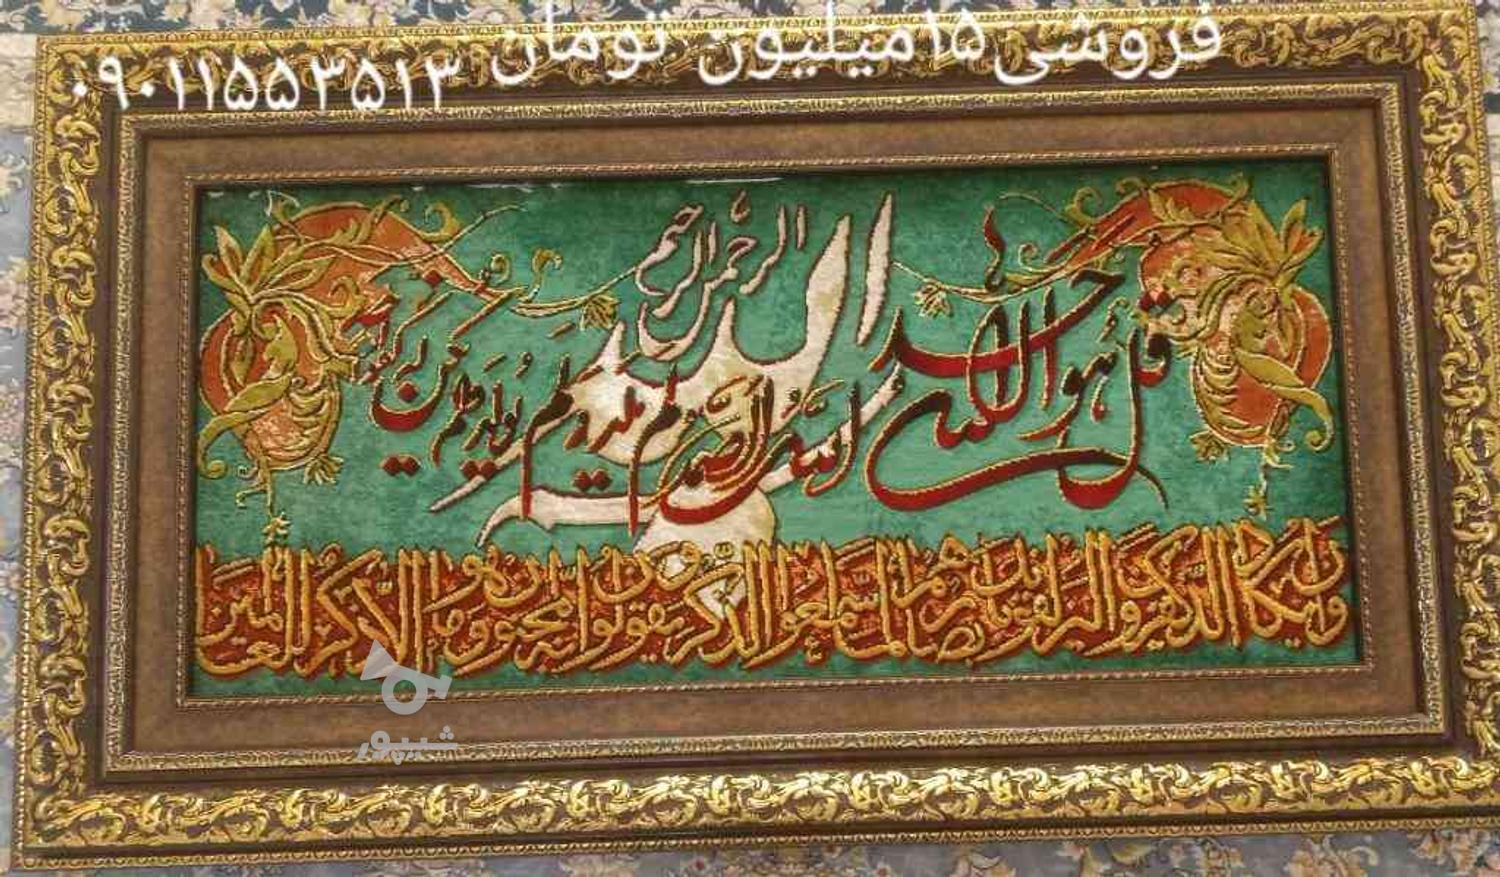 فروشی ۱۵میلیون تومان
۰۹۰۱۱۵۵۳۵۱۳
بسم الله الرحمن الرحیم
قل هو الله احد
الله الصمد لم یلد و لم یولد و لم یکن له کفوا احد
وان یکاد الذین کفروا لیزلقونک بابصارهم لما سمعوا الذکر و یقولون انه لمجنون و ما هو الا ذکر للعالمین
شیپور